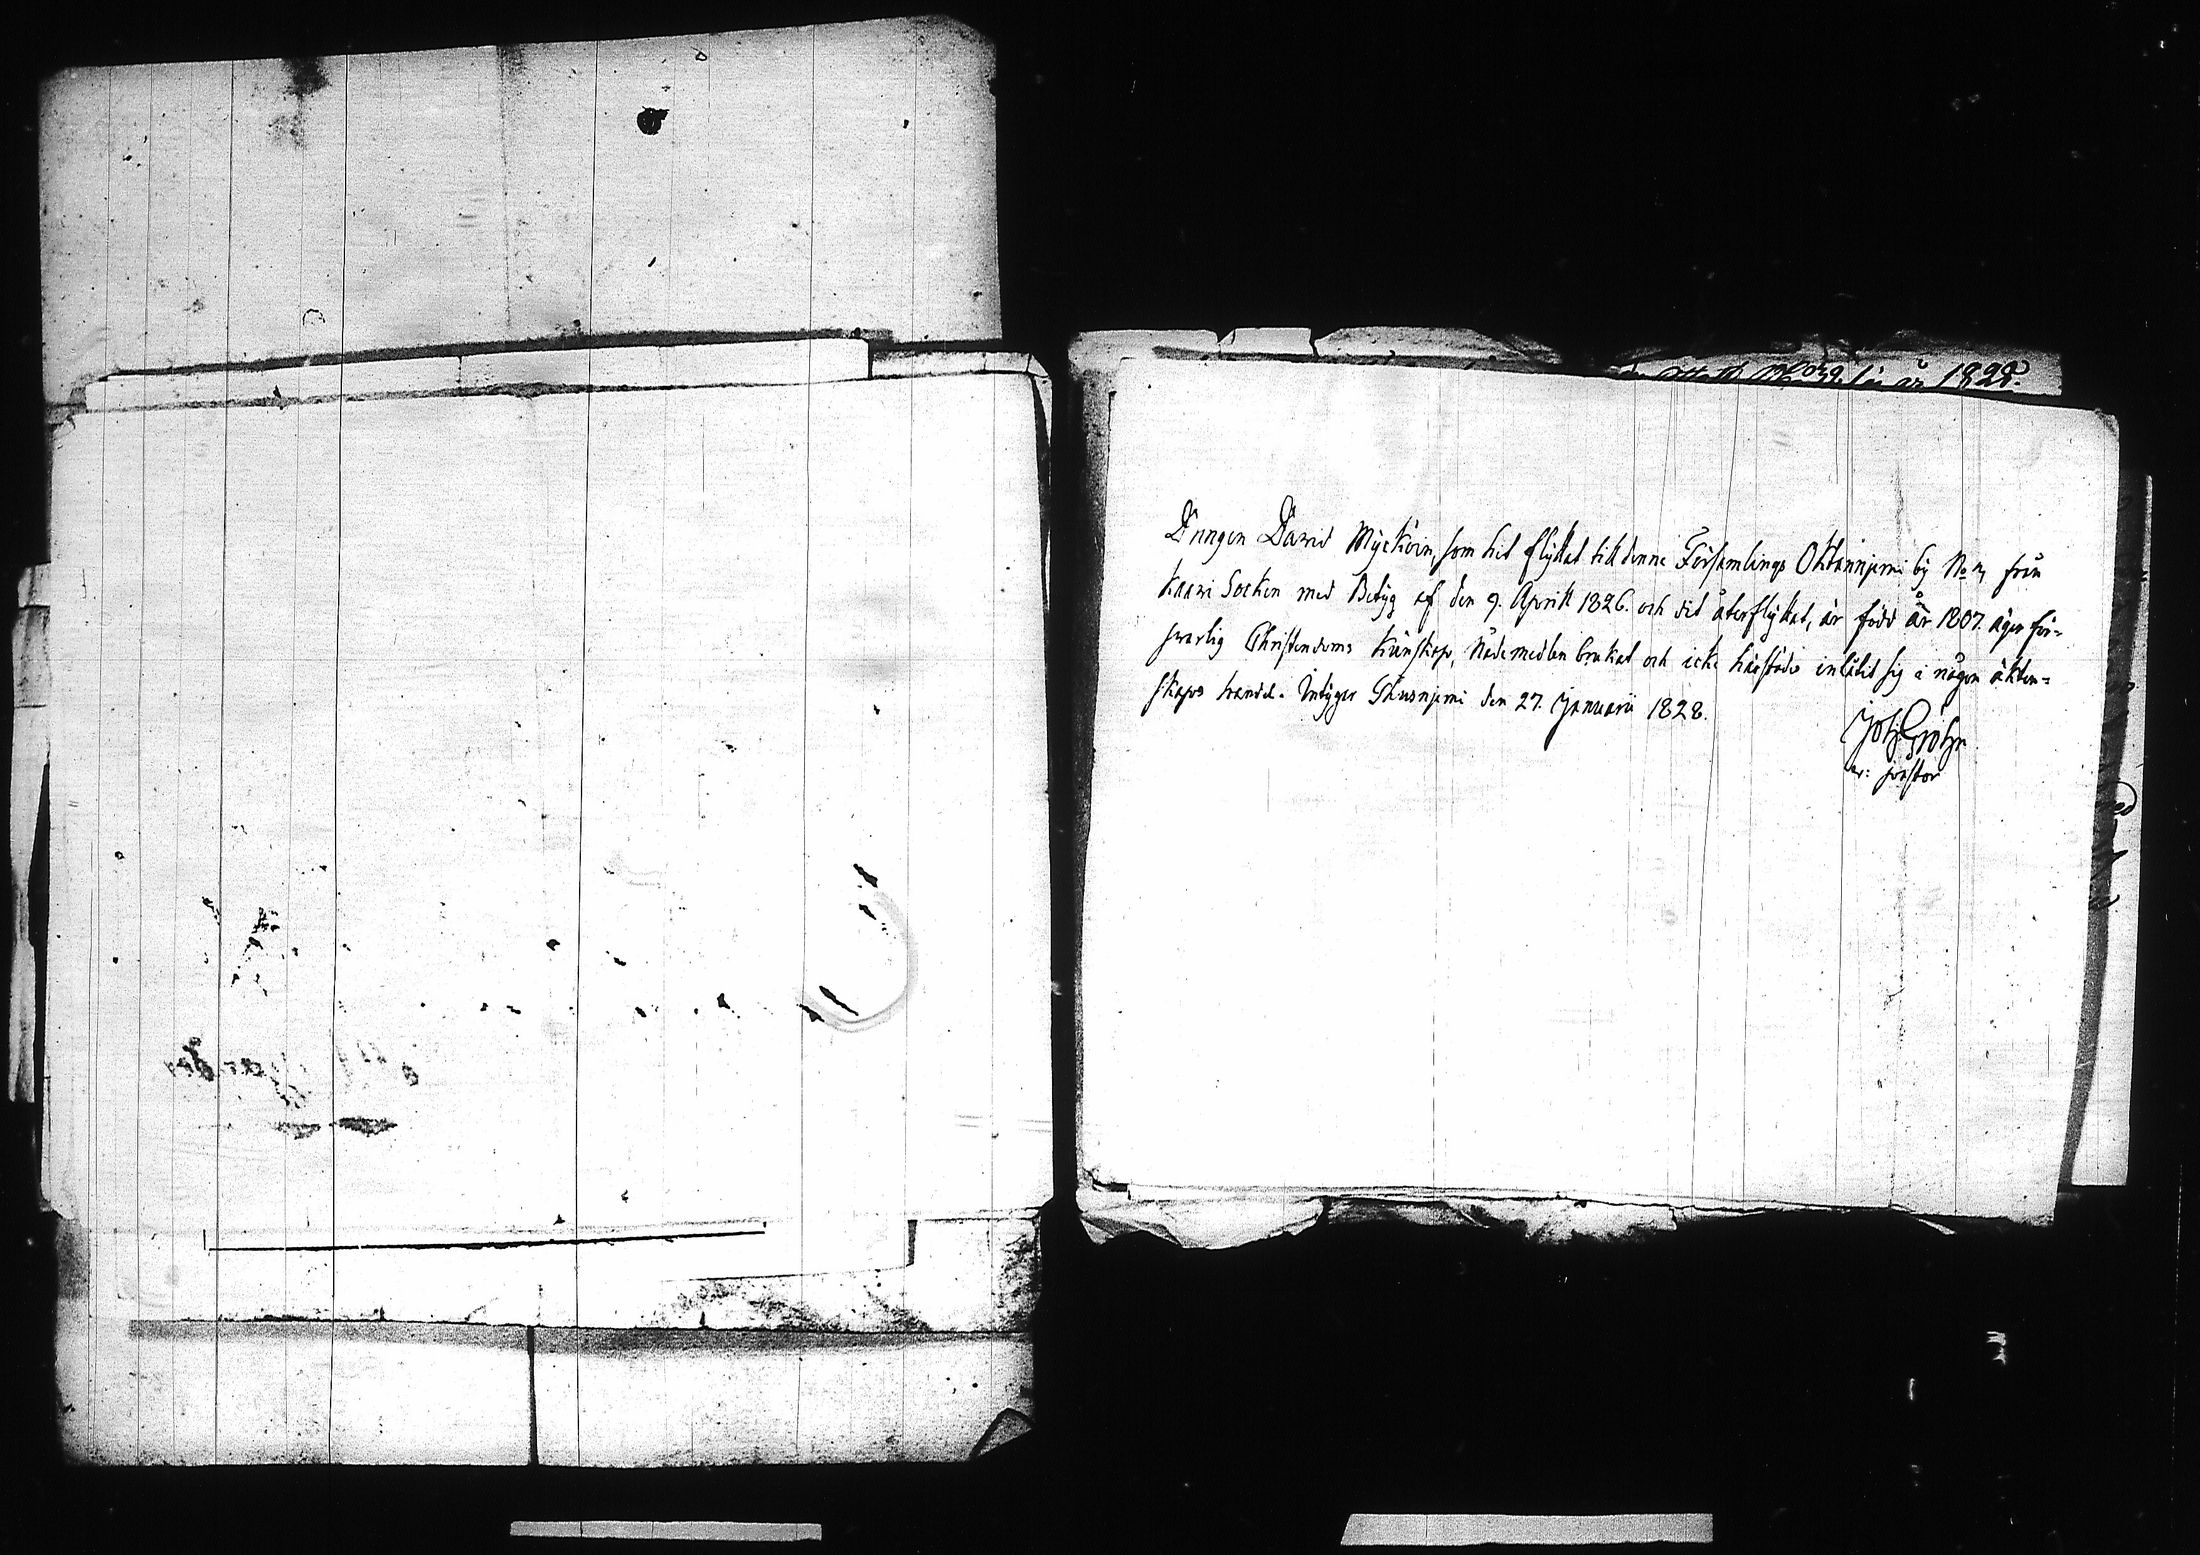 Drängen David Mycköin, som hit flyttat till denne Församlings Oktanniemi by No 2, från
Kaavi Socken med Betyg af den 9. April 1826. och dit återflyttat, är född år 1807. äger för=
svarlig Christendoms Kunskap, Nådemedlen brukat och icke härstädes inlåtit sig i någon äkten=
skaps handel. Intygar den 27. Januarii 1828.
Joh. Grohn
v: pastor